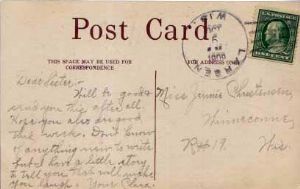 Post Card
THIS SPACE MAY BE USED FOR
CORRESPONDENCE
LARSEN
WIS.
Dear Sister:-
Will be good &
send you this after all.
Hope you also are good
this week. Don't know
of anything new to write
but I have a little story
to tell you that will make
you laugh. Your Clara
Miss Jennie Christensen,
Winneconne,
Wis.